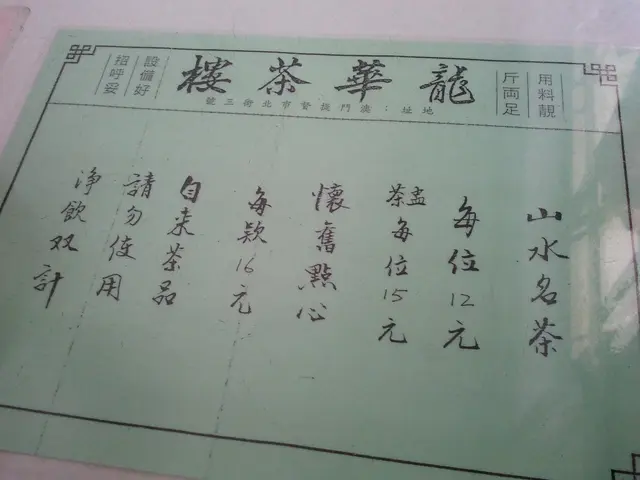 用料靚
斤両足
龍華茶樓
設備好
招呼妥
地址：澳門提督市北街三號
山水名茶
每位12元
茶盅每位15元
懷舊點心
每款16元
自来茶品
請勿使用
净飲双計